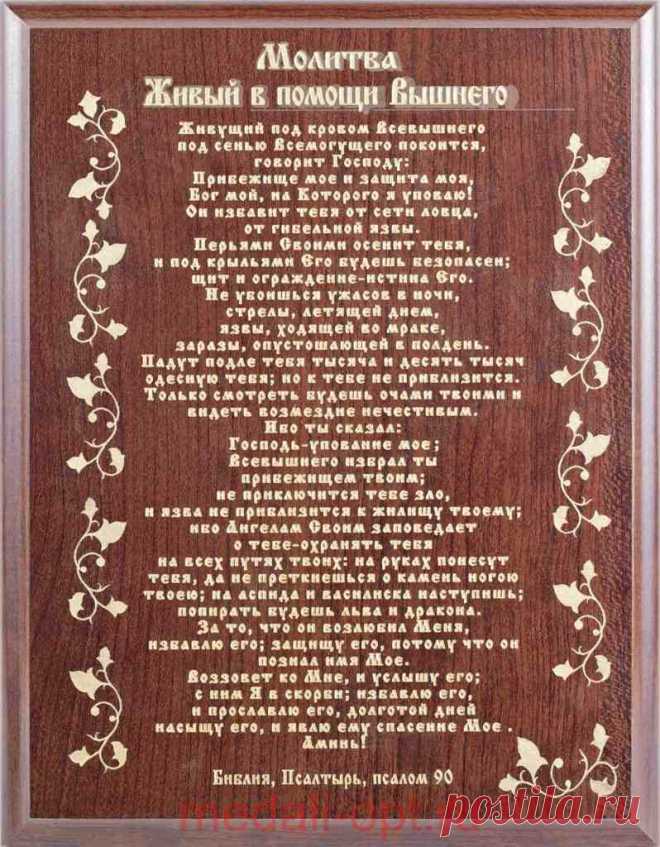 Молитва
Живый в помощи Вышнего
Живущий под кровом Всевышнего
под сенью Всемогущего покоится,
говорит Господу:
Прибежище мое и защита моя,
Бог мой, на Которого я уповаю!
Он избавит тебя от сети ловца,
от гибельной язвы.
Перьями Своими осенит тебя,
и под крыльями Его будешь безопасен;
щит и ограждение-истина Его.
Не убоишься ужасов в ночи,
стрелы, летящей днем,
язвы, ходящей во мраке,
заразы, опустошающей в полдень.
Падут подле тебя тысяча и десять тысяч
одесную тебя; но к тебе не приблизится.
Только смотреть будешь очами твоими и
видеть возмездие нечестивым.
Ибо ты сказал:
Господь-упование мое;
Всевышнего избрал ты
прибежищем твоим;
не приключится тебе зло,
и язва не приблизится к жилищу твоему;
ибо Ангелам Своим заповедает
о тебе-охранять тебя
на всех путях твоих: на руках понесут
тебя, да не преткнешься о камень ногою
твоею; на аспида и василиска наступишь;
попирать будешь льва и дракона.
За то, что он возлюбил Меня,
избавлю его; защищу его, потому что он
познал имя Мое.
Воззовет ко Мне, и услышу его;
с ним Я в скорби; избавлю его,
и прославлю его, долготой дней
насыщу его, и явлю ему спасение Мое .
Аминь!
Библия, Псалтырь, псалом 90
medali-opt.ru
postila.ru